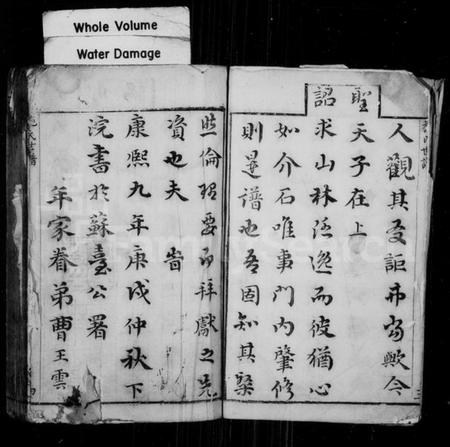 Whole Volume
Water Damage
人觀其受詎弗尚歟今
聖
天子在上
詔
求山林隱逸而彼猶心
如介石唯事門内肇修
則是譜也吾固知其槩
照倫
要
拜獻之先
資也夫 旹
康熙九年庚戌仲秋下
浣書於蘇臺公署
年家眷弟曹王雲